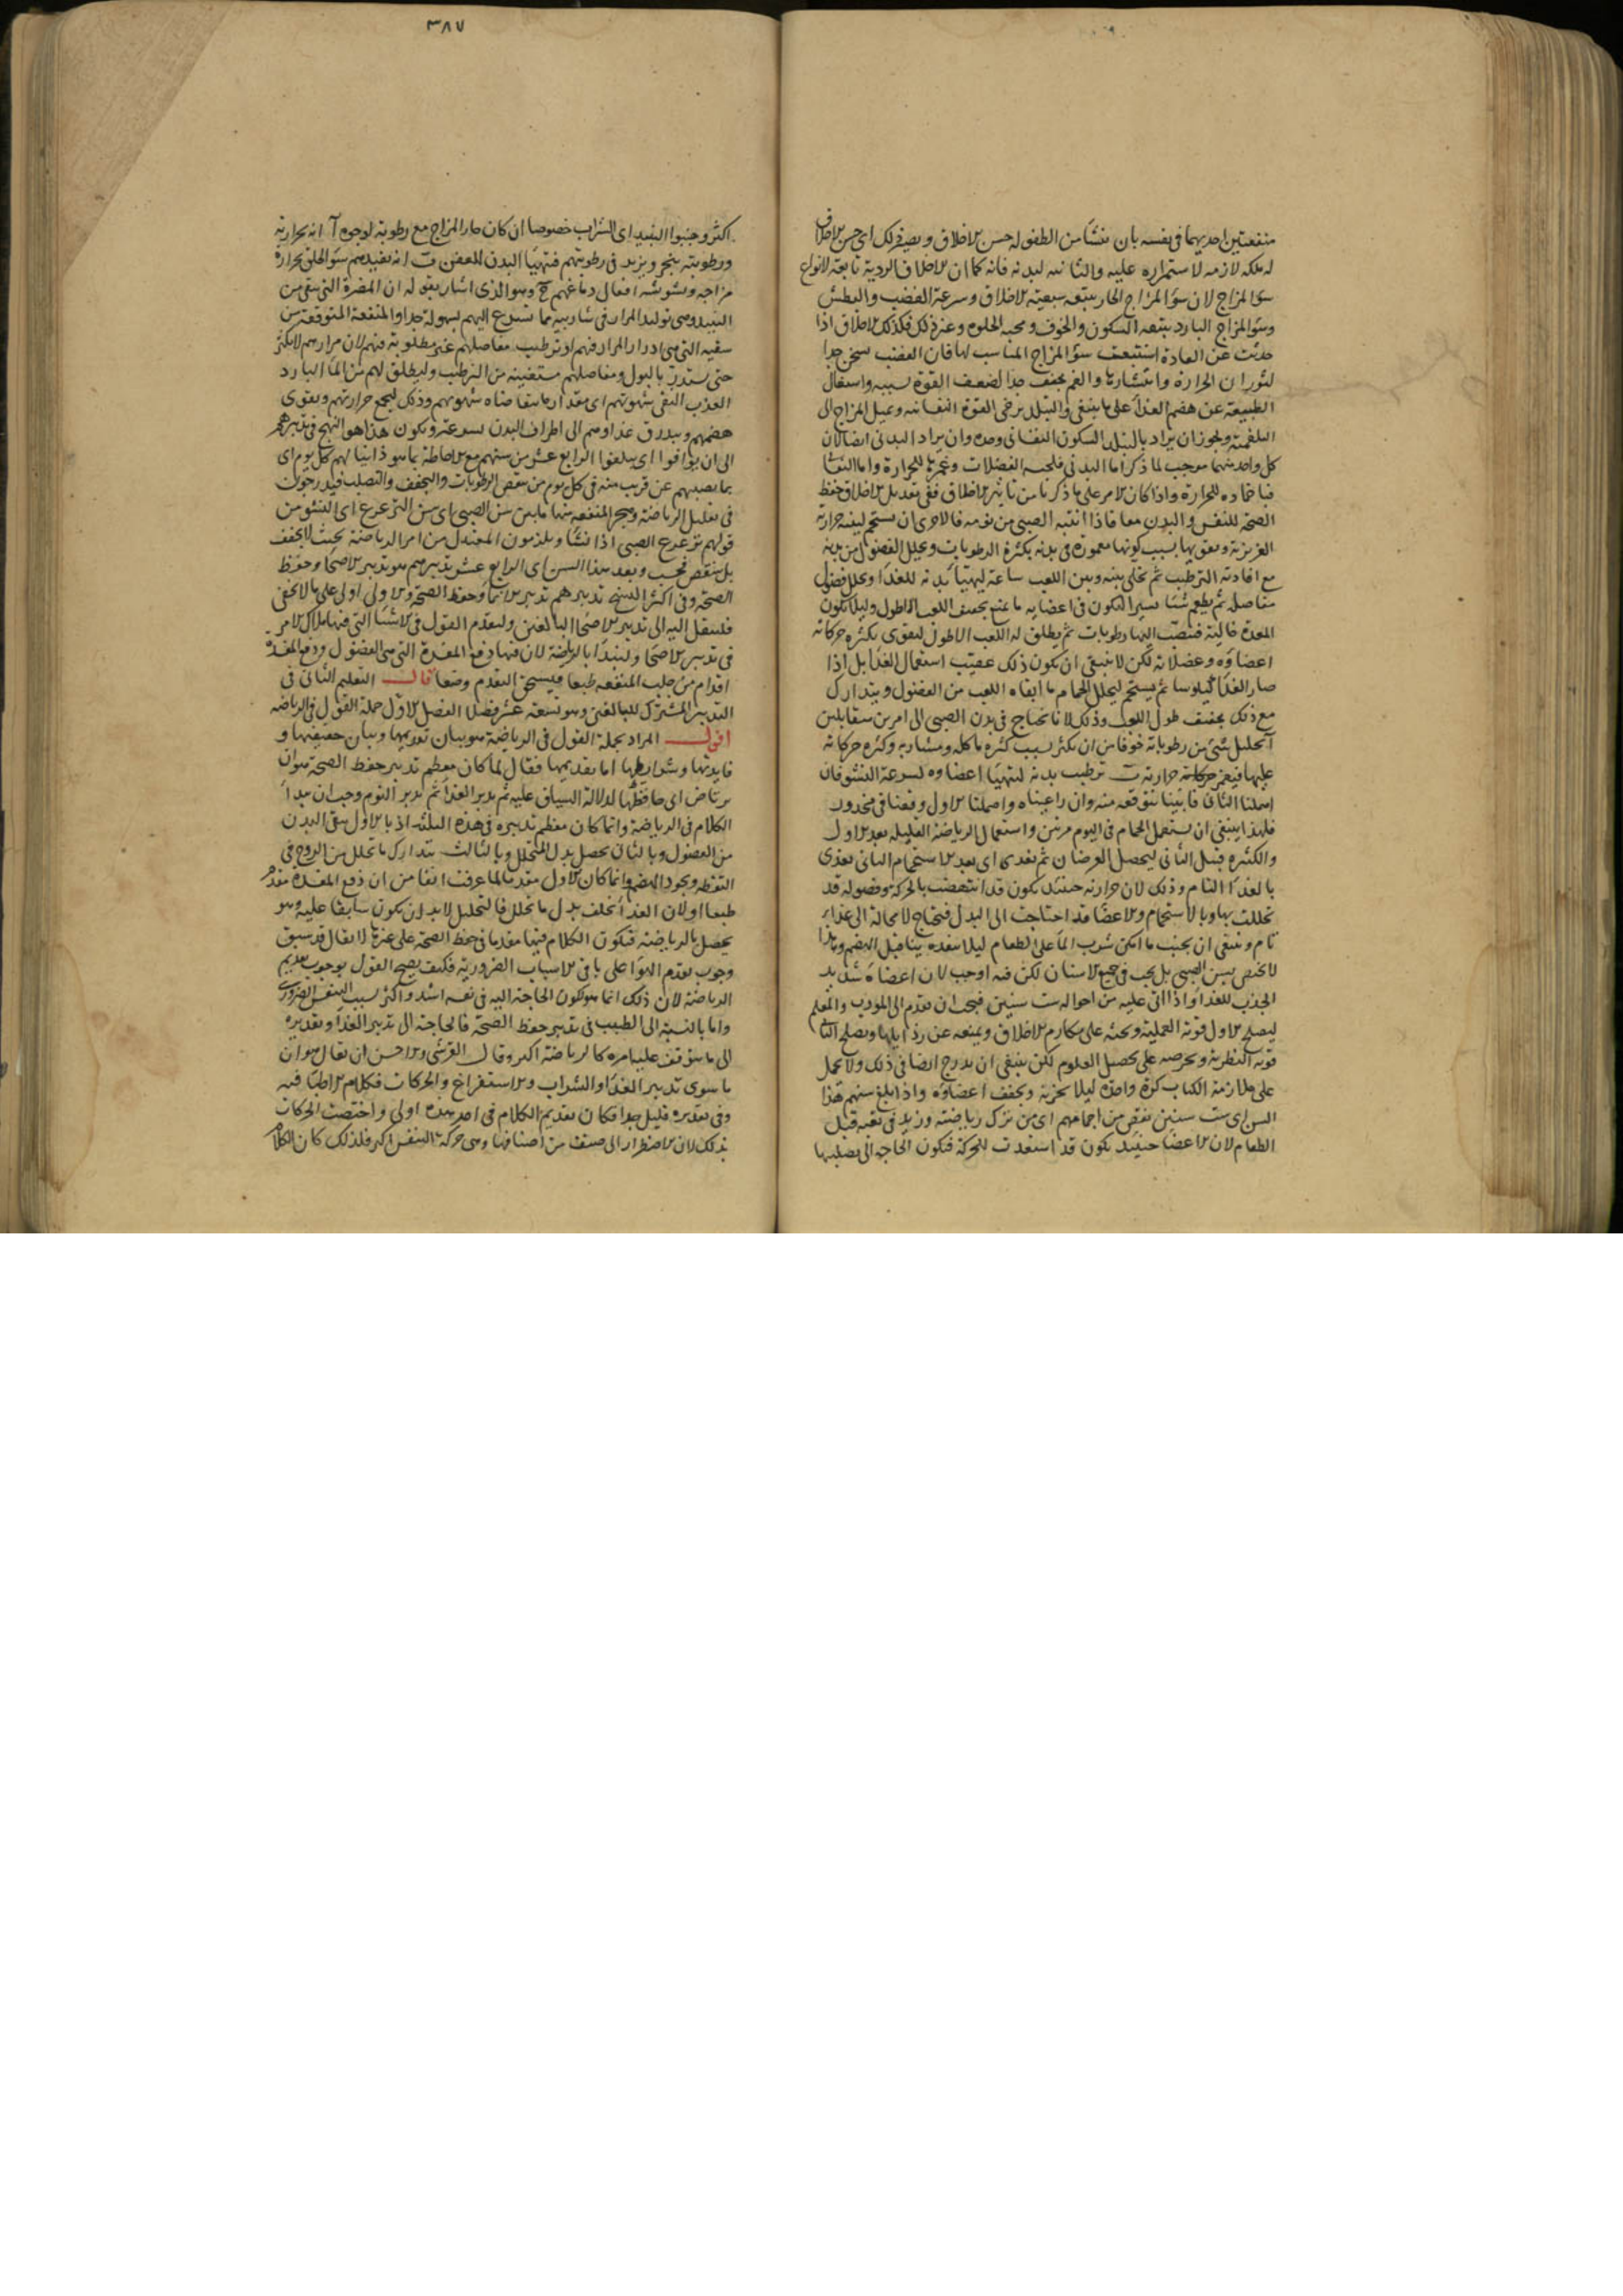 منفعتين احديهما فى نفسه بان ينشأ من الطفولة حسن الاخلاق ويصير ذلك اى حسن الاخلاق
له ملكة لازمة لاستمراره عليه والثانية لبدنه فانه كما ان الاخلاق الردية تابعة لانواع
سوء المزاج لان سوء المزاج الحار يتبعه سبعية الاخلاق وسرعة الغضب والبطش
وسوء المزاج البارد يتبعه السكون والخوف ومحبة الخلوة وغير ذلك فكذلك الاخلاق اذا
حدثت عن العادة استتبعت سوء المزاج المناسب لها فان الغضب يسخن جدا
لثوران الحرارة وانتشارها والغم يجفف جدا لضعف القوة بسببه واشتغال
الطبيعة عن هضم الغذاء على ما ينبغى والتبلد يرخى القوة النفسانية ويميل المزاج الى
البلغمية ويجوز ان يراد بالتبلد السكون النفسانى وحده وان يراد البدنى ايضا لان
كل واحد منهما موجب لما ذكر اما البدنى فلحبسه الفضلات وغمرها للحرارة واما النفسانى
فباخماده للحرارة واذا كان الامر على ما ذكرنا من تاثير الاخلاق ففى تعديل الاخلاق حفظ
الصحة للنفس والبدن معا فاذا انتبه الصبى من نومه فالاحرى ان يستحم لينبه حرارته
الغريزية ويقويها بسبب كونها مغمورة فى بدنه بكثرة الرطوبات ويحلل الفضول من بدنه
مع افادته الترطيب ثم يخلى بينه وبين اللعب ساعة ليتهيأ بدنه للغذاء ويحلل فضول
مفاصله ثم يطعم شيئا يسيرا ليكون فى اعضايه ما يمنع تجفيف اللعب الاطول وليلا يكون
المعدة خالية فتنصب اليها رطوبات ثم يطلق له اللعب الاطول ليقوى بكثرة حركاته
اعضاؤه وعضلاته لكن لا ينبغى ان يكون ذلك عقيب استعمال الغذاء بل اذا
صار الغذاء كيلوسا ثم يستحم ليحلل الحمام ما ابقاه اللعب من الفضول ويتدارك
مع ذلك تجفيف طول اللعب وذلك لانا نحتاج فى بدن الصبى الى امرين متقابلين
آ تحليل شىء من رطوباته خوفا من ان يكثر بسبب كثرة ماكله ومشاربه وكثرة حركاته
عليها فيغمر حرارته ب ترطيب بدنه لتتهيأ اعضاوه لسرعة النشو فان
اهملنا الثانى فاتنا ما نتوقعه منه وان راعيناه واهملنا الاول وقعنا فى محذور
فلهذا ينبغى ان يستعمل الحمام فى اليوم مرتين واستعمال الرياضة القليلة بعد الاول
والكثيرة قبل الثانى ليحصل الغرضان ثم يغدى اى بعد الاستحمام الثانى يغذى
بالغذاء التام وذلك لان حرارته حينئذ يكون قد انتهضت بالحركة وفضوله قد
تحللت بها وبالاستحمام والاعضاء قد احتاجت الى البدل فتحتاج لا محالة الى غذاء
تام وينبغى ان يجنب ما امكن شرب الماء على الطعام ليلا ينفذه نيا قبل الهضم وهذا
لا يختص بسن الصبى بل يجب فى جميع الاسنان لكن فيه اوجب لان اعضاءه شديد
الجذب للغذاء واذا اتى عليه من احواله ست سنين فيجب ان يقدم الى المودب والمعلم
ليصلح الاول قوته العملية ويحثه على مكارم الاخلاق ويمنعه عن رذايلها ويصلح الثانى
قوته النظرية ويحرصه على تحصيل العلوم لكن ينبغى ان يدرج ايضا فى ذلك ولا يحمل
على ملازمة الكتاب كرة واحدة ليلا يحزنه ويجفف اعضاؤه واذا بلغ سنهم هذا
السن اى ست سنين نقص من اجمامهم اى من ترك رياضته وزيد فى تعبه قبل
الطعام لان الاعضاء حينئذ يكون قد استعدت للحركة فيكون الحاجة الى تصليبها
٣٨٧
اكثر وجنبوا النبيذ اى الشراب خصوصا ان كان حار المزاج مع رطوبة لوجوه آ انه بحرارته
ورطوبته يبخر ويزيد فى رطوبتهم فتهيأ البدن للعفن ب انه يفيدهم سوء الخلق بحرارة
مزاجه وتشويشه افعال دماغهم ج وهو الذى اشار بقوله ان المضرة التى يبقى من
النبيذ وهى توليد المرار فى شاربيه مما تسرع اليهم بسهولة جدا والمنفعة المتوقعة من
سقيه التى هى ادرار المرار فيهم او ترطيب مفاصلهم غير مطلوبة فيهم لان مرارهم لا يكثر
حتى يستدر بالبول ومفاصلهم مستغنية من الترطيب وليطلق لهم من الماء البارد
العذب النقى شهوتهم اى مقدار ما يتقاضاه شهوتهم وذلك ليجمع حرارتهم ويقوى
هضمهم ويبدرق غذاوهم الى اطراف البدن بسرعة ويكون هذا هو النهج فى تدبيرهم
الى ان يوافوا اى يبلغوا الرابع عشر من سنهم مع الاحاطة بما هو ذا يتاتى لهم كل يوم اى
بما يصيبهم عن قريب منه فى كل يوم من تنقص الرطوبات والتجفف والتصلب فيدرجون
فى تقليل الرياضة وهجر المنفعة منها ما بين سن الصبى الى سن الترعرع اى النشو من
قولهم ترعرع الصبى اذا نشأ ويلزمون المعتدل من امر الرياضة بحيث لا يجفف
بل ينقص فحسب وبعد هذا السن اى الرابع عشر تدبيرهم هو تدبير الاصحاء وحفظ
الصحة وفى اكثر النسخ تدبيرهم تدبير الانماء وحفظ الصحة والاولى اولى على ما لا يخفى
فلننتقل اليه الى تدبير الاصحاء البالغين ولنقدم القول فى الاشياء التى فيها ملاك الامر
فى تدبير الاصحاء ولنبدأ بالرياضة لان فيها دفع المفسدة التى هى الفضول ودفع المفسدة
اقدم من جلب المنفعة طبعا فيستحق التقدم وضعا قال التعليم الثانى فى
التدبير المشترك للبالغين وهو سبعة عشر فصلا الفصل الاول جملة القول فى الرياضة
اقول المراد بجملة القول فى الرياضة هو بيان تقديمها وبيان حقيقتها و
فايدتها وشرايطها اما تقديمها فقال لما كان معظم تدبير حفظ الصحة هو ان
يرتاض اى حافظها لدلالة السياق عليه ثم تدبير الغذاء ثم تدبير النوم وجب ان نبدأ
الكلام فى الرياضة وانما كان معظم تدبيره فى هذه الثلثة اذ بالاول ينقى البدن
من الفضول وبالثانى يحصل بدل المتحلل وبالثالث يتدارك ما تحلل من الروح فى
اليقظة ويجود الهضم وانما كان الاول مقدما لما عرفت انفا من ان دفع المفسدة مقدم
طبعا او لان الغذاء يخلف بدل ما تحلل فالتحليل لابد ان يكون سابقا عليه وهو
يحصل بالرياضة فيكون الكلام فيها مقدما فى حفظ الصحة على غيرها لا يقال قد سبق
وجوب تقدم الهواء على باقى الاسباب الضرورية فكيف يصح القول بوجوب تقديم
الرياضة لان ذلك انما هو لكون الحاجة اليه فى نفسه اشد واكثر بسبب التنفس الضرورى
واما بالنسبة الى الطبيب فى تدبير حفظ الصحة فالحاجة الى تدبير الغذاء وتقديره
الى ما يتوقف عليه امره كالرياضة اكثر وقال القرشى والاحسن ان يقال هو ان
ما سوى تدبير الغذاء والشراب والاستفراغ والحركات فكلام الاطباء فيه
وفى تقديره قليل جدا فكان تقديم الكلام فى احد هذه اولى واختصت الحركات
بذلك لان الاضطرار الى صنف من اصنافها وهى حركة التنفس اكثر فلذلك كان الكلام